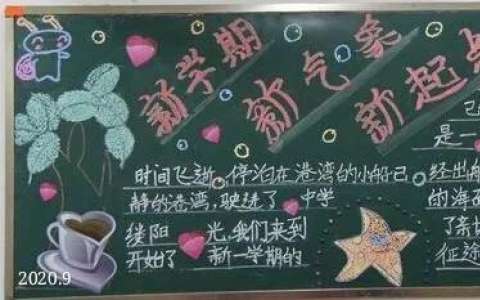 新学期 新气象 新起点
时间飞逝,停泊在港湾的小船已
静的港湾,驶进了 中学
缕阳 光,我们来到
开始了 新一学期的
己
是一
经出航
的海
了亲
征途
2020.9